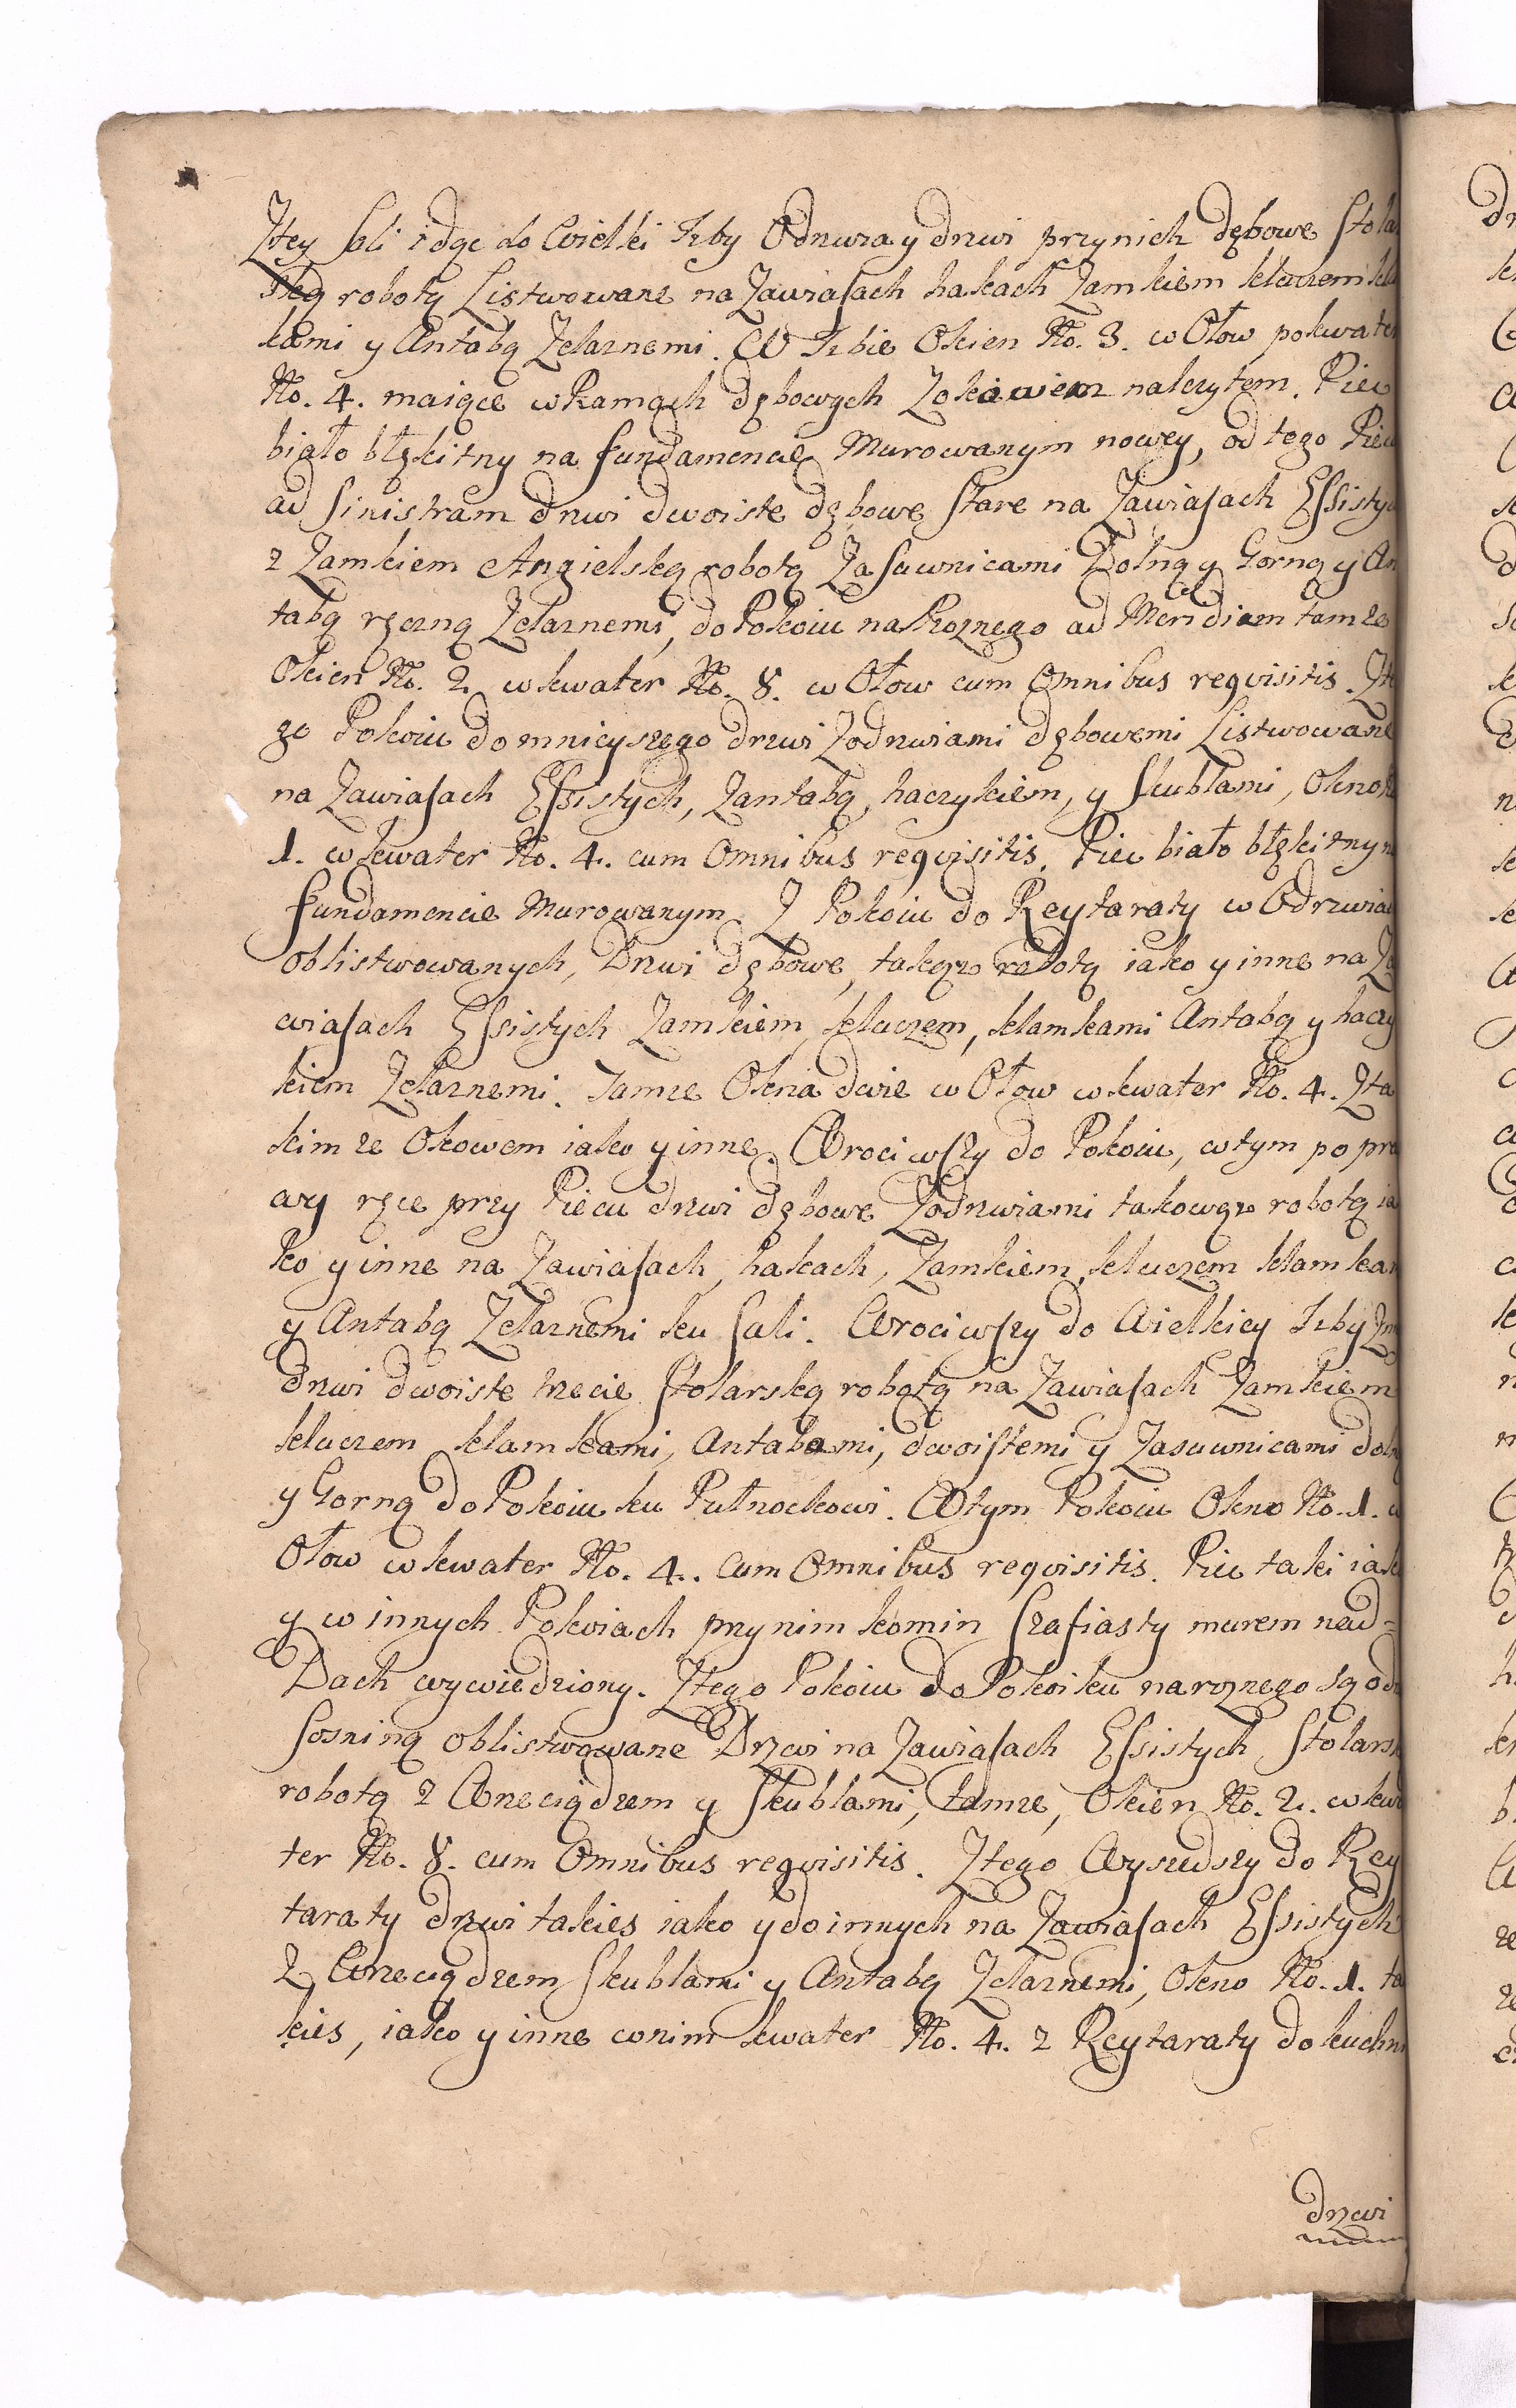 Ztey Sali idąc do Wielki Izby Odrzwia y drzwi przynich dębowe Stola
rską robotą Listwowane na Zawiasach hakach Zamkiem kluczem kla
kami y Antabą Zelaznemi. W Izbie Okien No. 3. w Ołow pokwater
No. 4. maiące wRamach dębowych Zokowiem nalezytem. Piec
biało błękitny na fundamencie Murowanym nowey, od tego Pieca
ad sinistram drzwi dwoiste dębowe Stare na Zawiasach Essistych
z Zamkiem Angielską robotą Zasuwnicami Dolną y Gorną y An
tabą ręczną Zelaznemi, do Pokoiu naRoznego ad Meridiam tamze
Okien No. 2. w kwater No. 8. w Ołow cum Omnibus reqvisitis. Zte
go Pokoiu do mnieyszego drzwi Zodrzwiami dębowemi Listwowane
na Zawiasach Essistych, Zantabą, haczykiem, y Skublami, Okno No
1. w kwater No. 4. cum Omnibus reqvisitis. Piec biało błękitny na
fundamencie Murowanym. Z Pokoiu do Reytaraty w Odrzwiach
oblistwowanych, Drzwi dębowe, takąz robotą iako y inne na Za
wiasach Essistych Zamkiem, kluczem, klamkami Antabą y haczy
kiem Zelaznemi. Tamze Okna dwie w Ołow w kwater No. 4. Zta
kim ze Okowem iako y inne. Wrociwszy do Pokoiu, wtym po pra
wy ręce przy Piecu drzwi dębowe Zodrzwiami takowąz robotą ia
ko y inne na Zawiasach, hakach, Zamkiem, kluczem klamkam
y Antabą Zelaznemi ku Sali. Wrociwszy do Wielkiey Izby
drzwi dwoiste trzecie Stolarską robotą na Zawiasach Zamkiem
kluczem klamkami, Antabami, dwoistemi y Zasuwnicami dolną
y Gorną do Pokoiu ku Pułnockowi. Wtym Pokoiu Okno No. 1. w
Ołow w kwater No. 4. Cum Omnibus reqvisitis. Piec taki iak
y w innych Pokoiach przy nim komin Szafiasty murem nad=
Dach wywiedziony. Ztego Pokoiu do Pokoiku naroznego są od
Sosniną oblistwowane Drzwi na Zawiasach Essistych Stolars
robotą z Wrzeciądzem y Skublami, tamze, Okien No. 2. w kwa
ter No. 8. cum Omnibus reqvisitis. Ztego Wyszedszy do Rey
taraty drzwi takies iako y do innych na Zawiasach Essistych
Z Wrzeciądzem Skublami y Antabą Zelaznemi, Okno No. 1. ta
kies, iako y inne wnim kwater No. 4. z Reytaraty do kuchni
drzwi